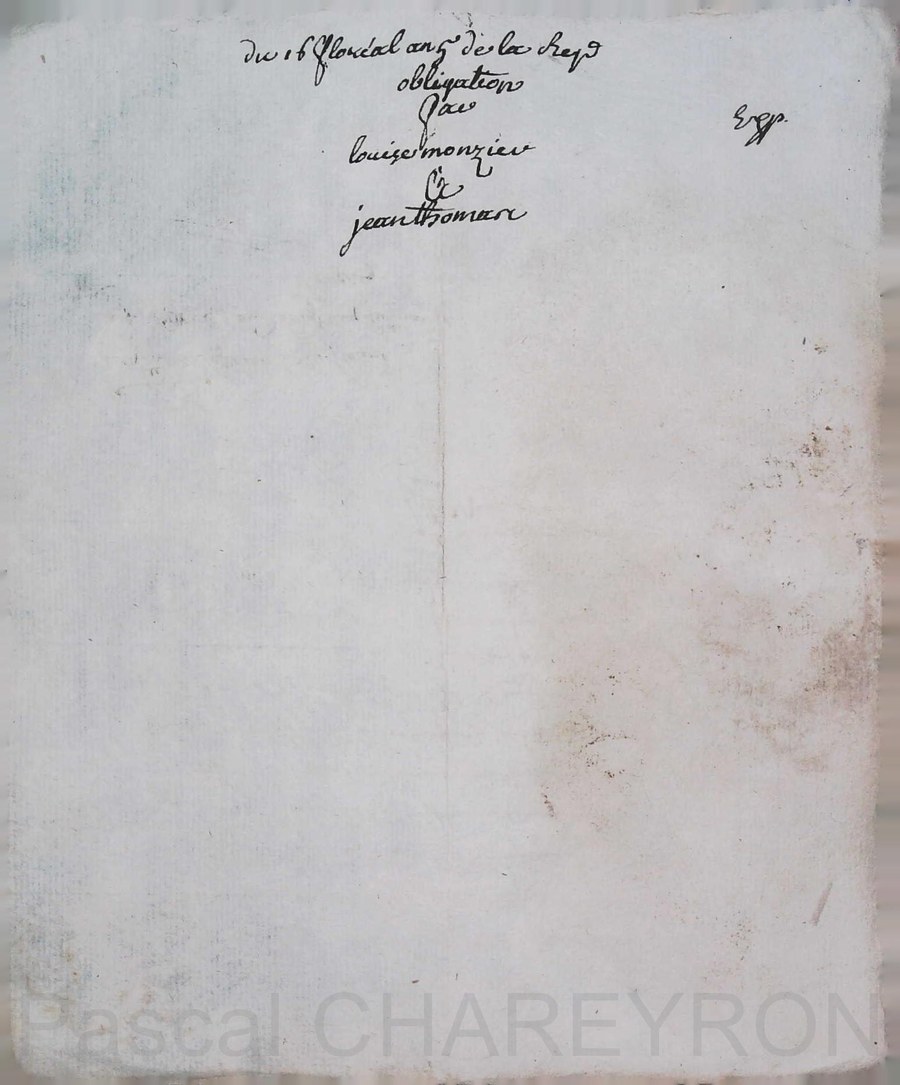 du 16 floréal an 5e de la Repd
obligation
par
louise monzier
Et
jean thomas
Exp.
Pascal CHAREYRON